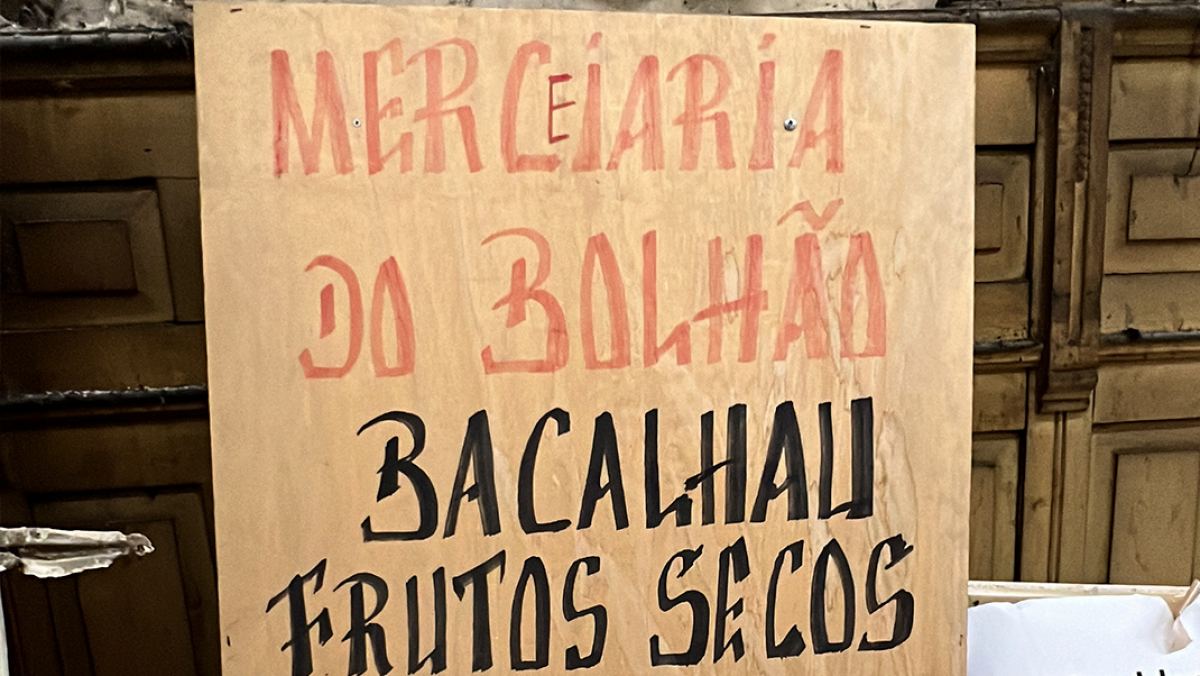 MERCEIARIA
DO BOLHÃO
BACALHAU
FRUTOS SECOS